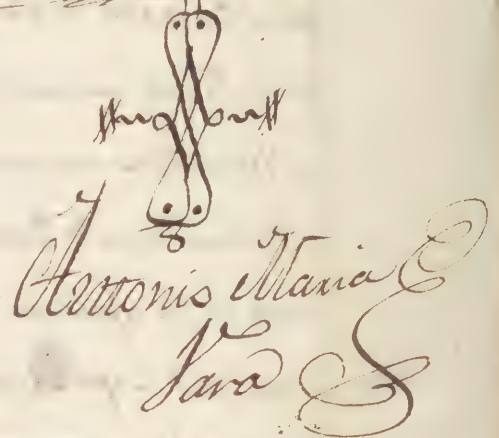 Antonio Maria
Vara